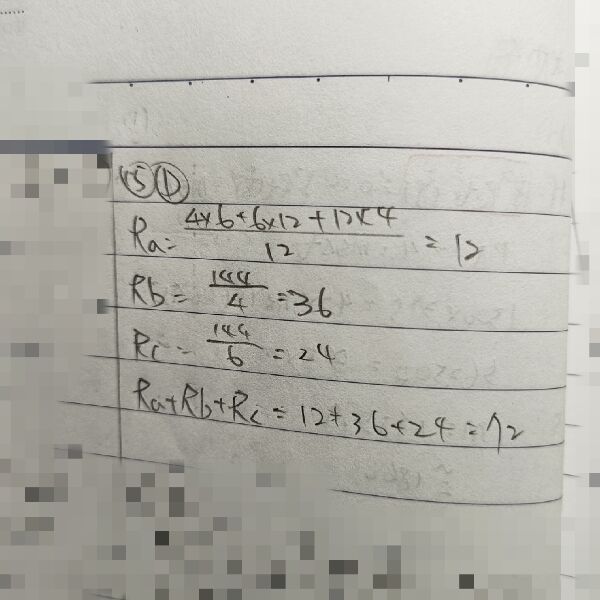 15 D
Ra = 4×6+6×12+12×4 / 12 = 12
Rb = 144 / 4 = 36
Rc = 144 / 6 = 24
Ra+Rb+Rc = 12+36+24 = 72